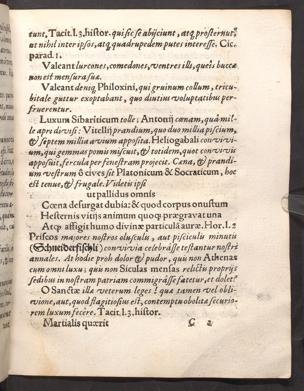 tunt, Tacit. l.3. histor. qui sic se abijciunt, atq; prosternut,
ut nihil inter ipsos, atq; quadrupedem putes interesse. Cic.
parad. 1.
Valeant lurcones, comedones, ventres illi, queis buccæ
non est mensura suæ.
Valeant deniq; Philoxini, qui gruinum collum, tricu-
bitale guttur exoptabant, quo diutius voluptatibus per-
fruerentur.
Luxum Sibariticum tolle: Antonij cœnam, quâ mil-
le apri divisi: Vitellij prandium, quo duo millia pisciũm,
& septem millia avium apposita. Heliogabali convivi-
um, qui gemmas pomis miscuit, & totidem, quot convivis
apposuit, fercula per fenestram projecit. Cœna, & prandi-
um vestrum ô cives sit Platonicum & Socraticum, hoc
est tenue, & frugale. Videtis ipsi
ut pallidus omnis
Cœna desurgat dubia: & quod corpus onustum
Hesternis vitijs animum quoq; prægravat una
Atq; assigit humo divinæ particulã auræ. Hor. l. 2
Priscos majores nostros olusculis, aut pisciculis minutis
(Schneiderfischli) convivia celebrâsse testantur nostri
annales. At hodie proh dolor & pudor, quis non Athenas
cum omni luxu: quis non Siculas mensas relictis proprijs
sedibus in nostram patriam commigrâsse fatetur, et dolet?
O Sanctæ illæ veterum leges! quæ tamen vel obli-
vione, aut, quod flagitiosius est, contemptu obolitæ securio-
rem luxum fecêre. Tacit. l. 3. histor.
Martialis quærit
G 2